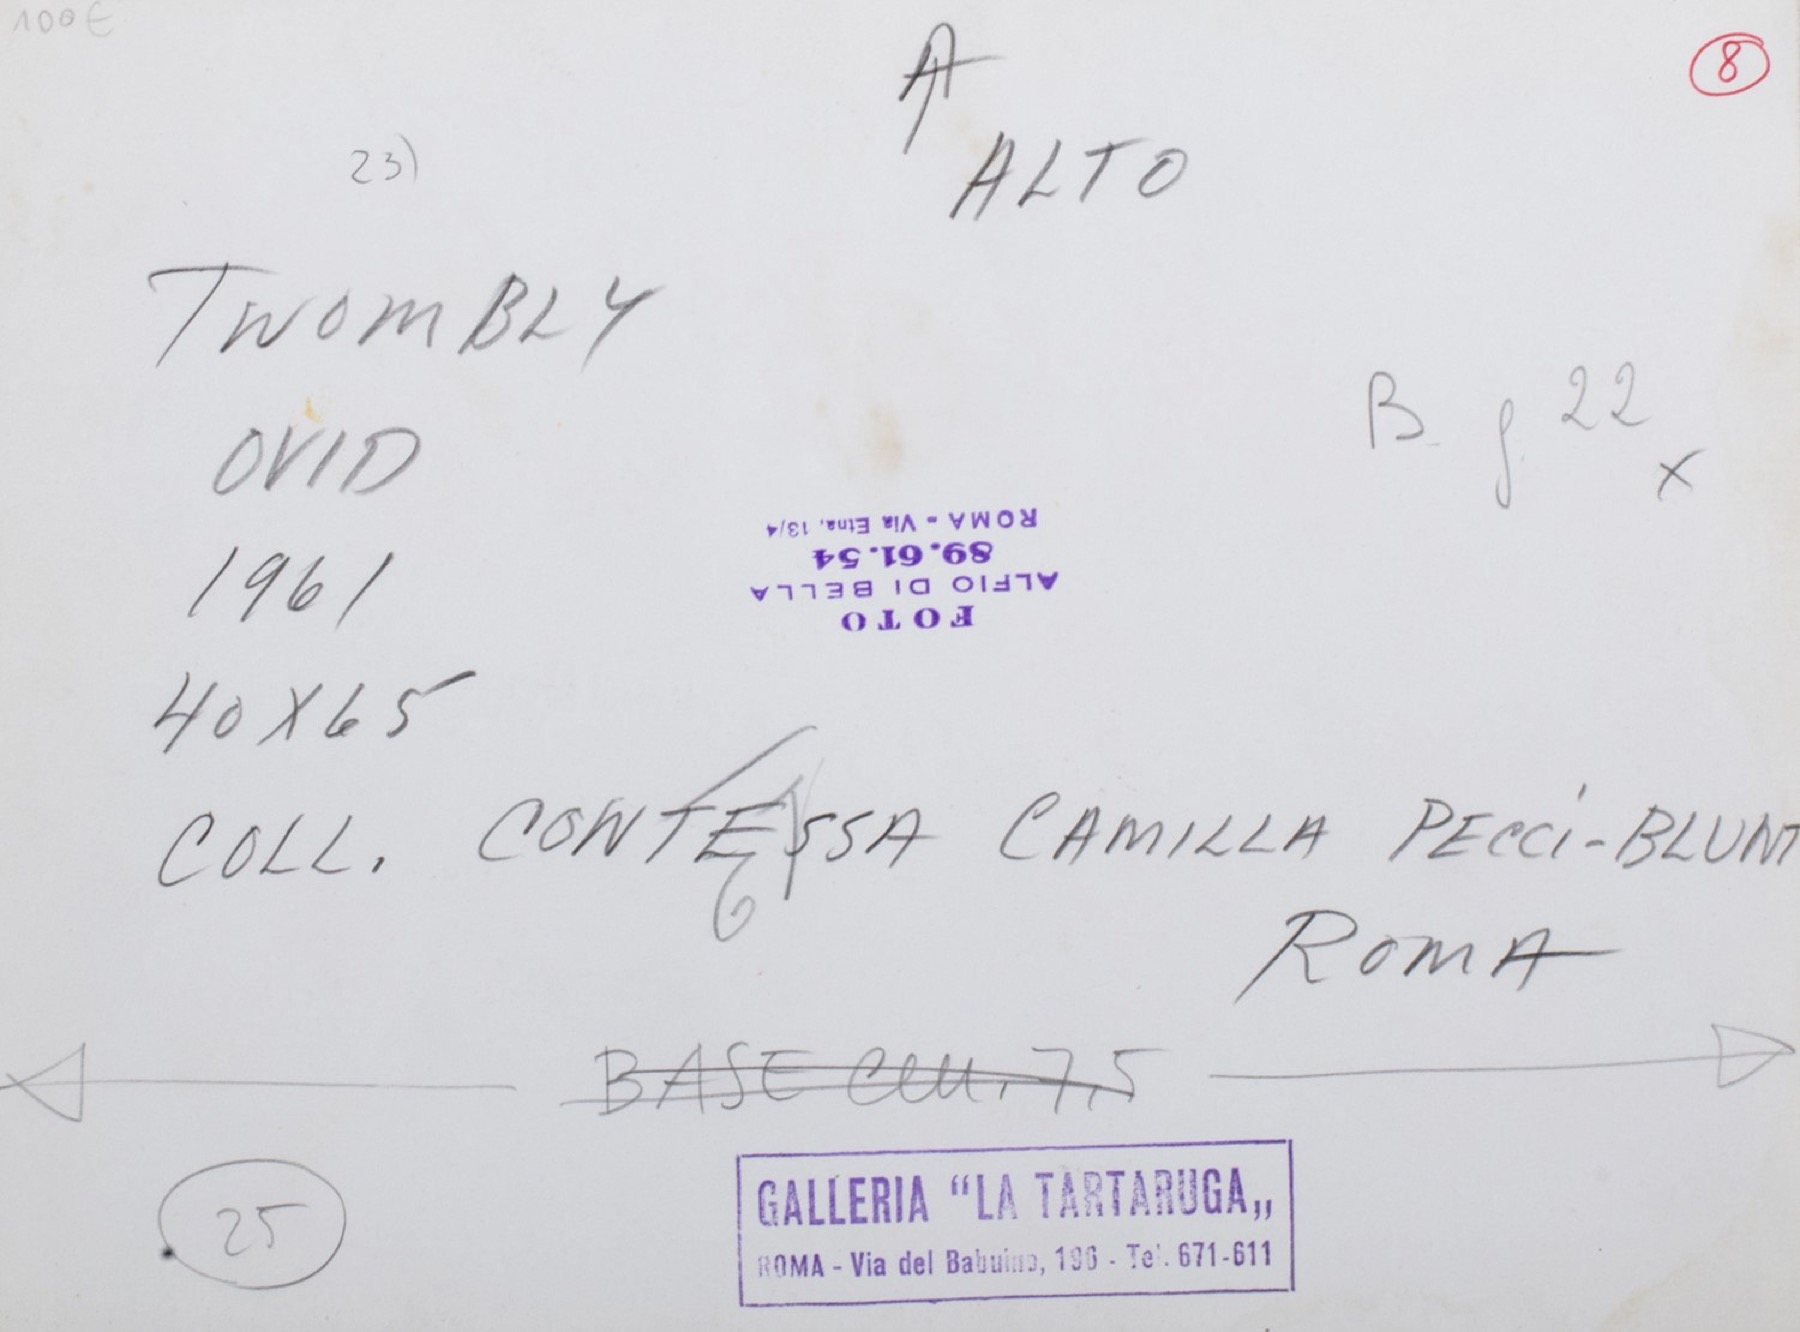 100€
8
ALTO
23)
TWOMBLY
B. f. 22
x
OVID
ROMA - Via Etna, 13/4
89.61.54
ALFIO DI BELLA
FOTO
1961
40X65
COLL. CONTESSA CAMILLA PECCI-BLUNT
6
ROMA
BASE cm. 7,5
25
GALLERIA “LA TARTARUGA„
ROMA - Via del Babuino, 196 - Tel. 671-611